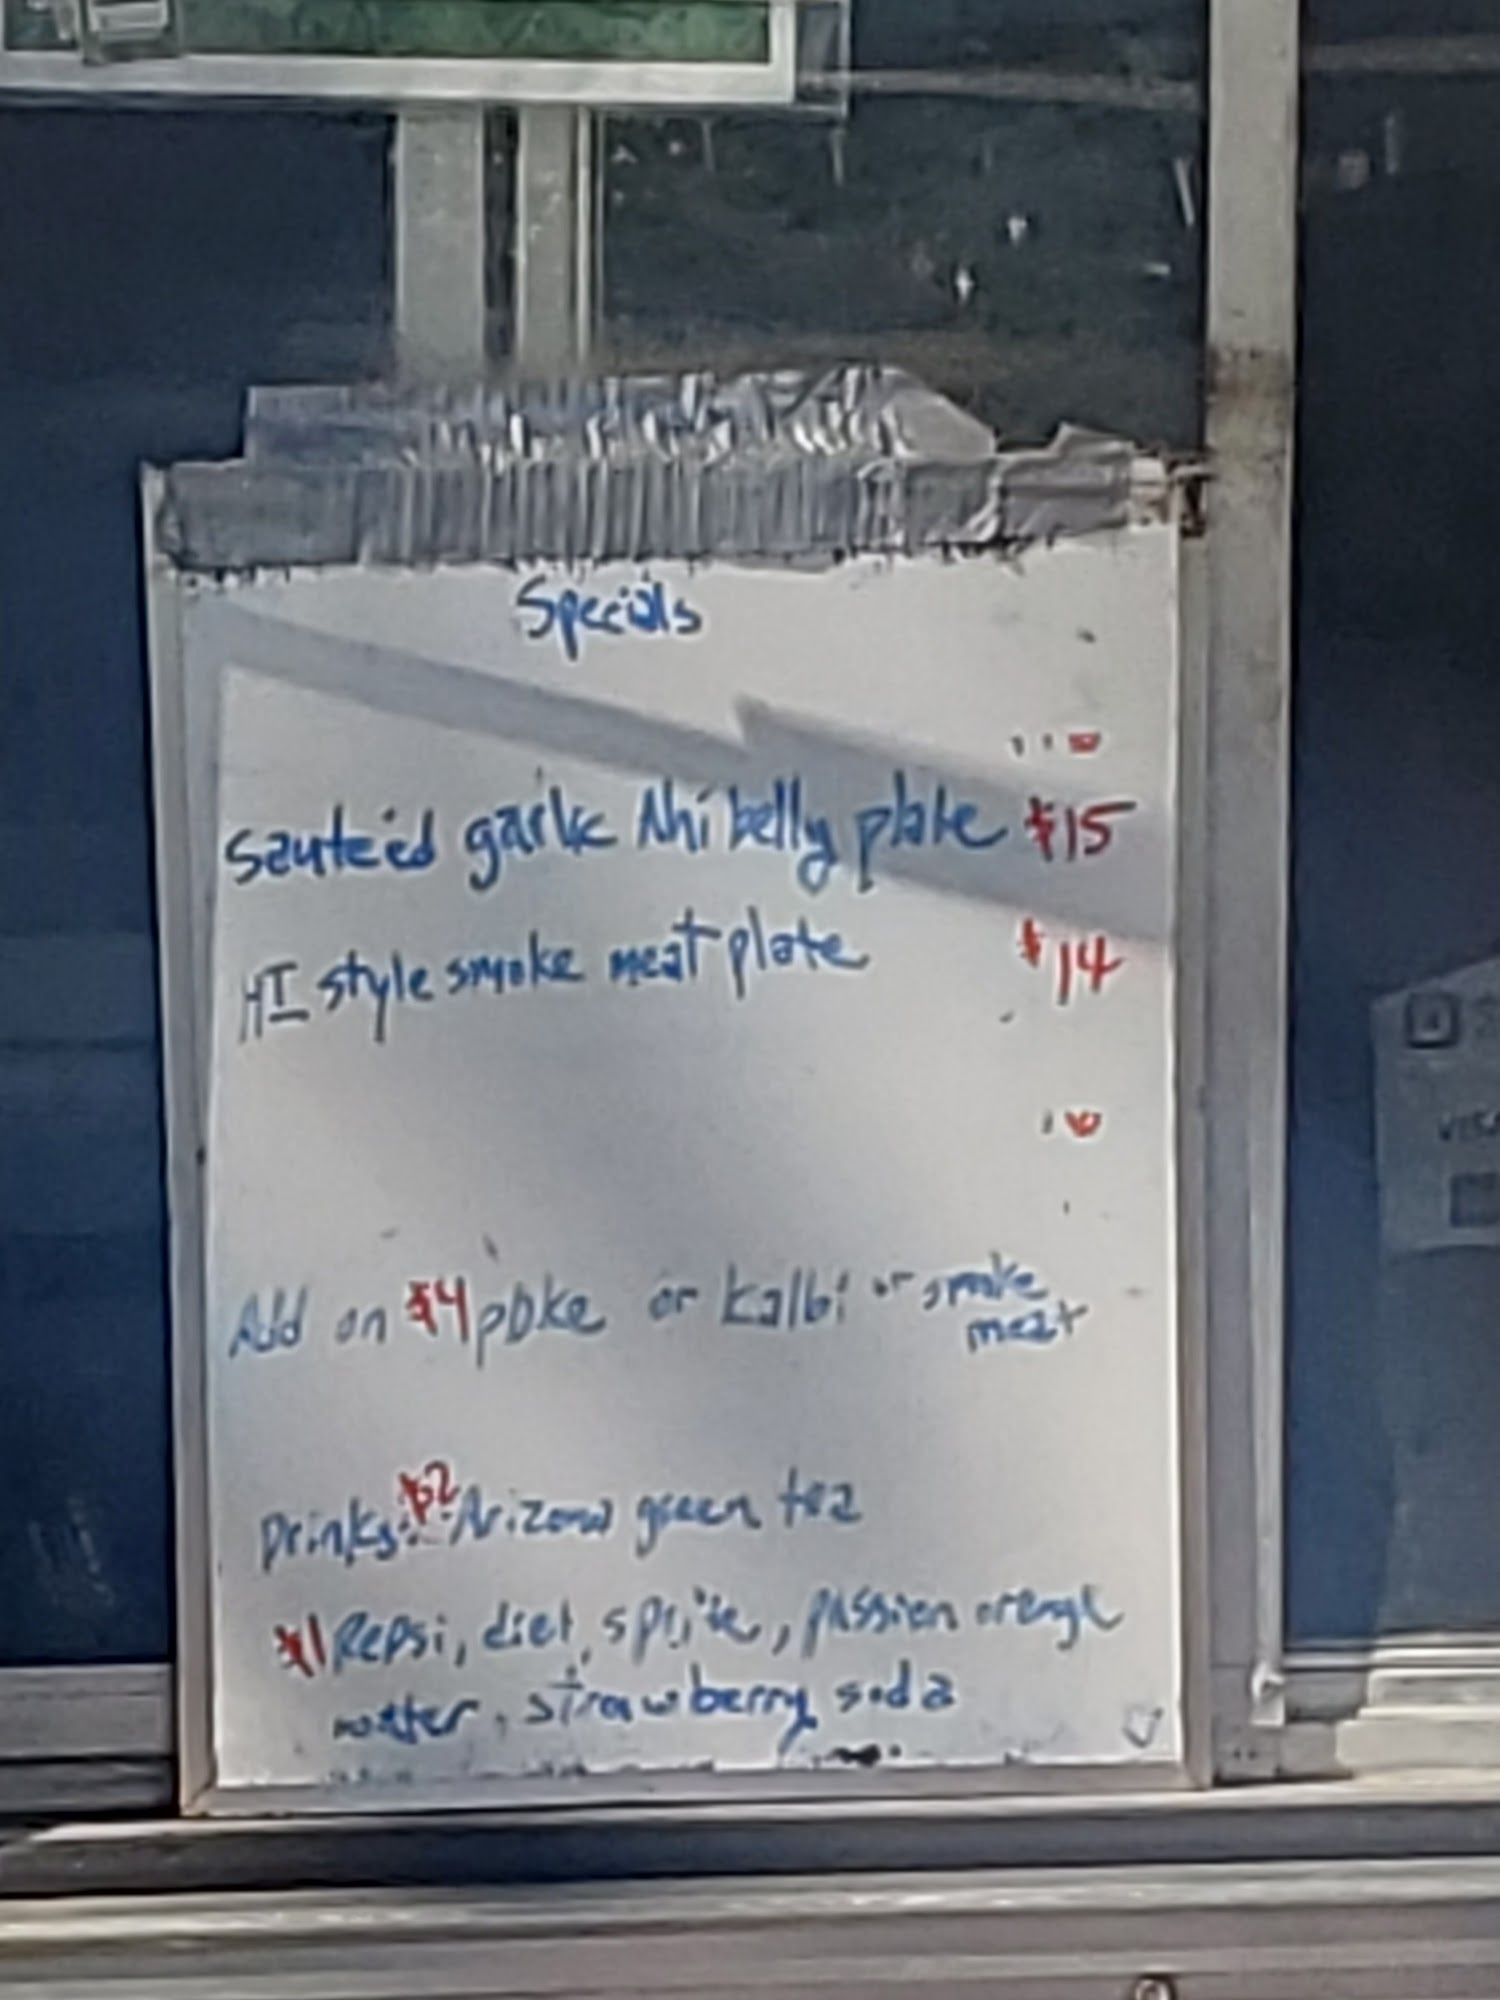 Specials
Sauteéd garlic Ahi belly plate $15
HI style smoke meat plate $14
Add on $4 poke or Kalbi or smoke
meat
Drinks: $2 Arizona green tea
$1 Pepsi, diet, sprite, passion orange
watter, strawberry soda
VISA